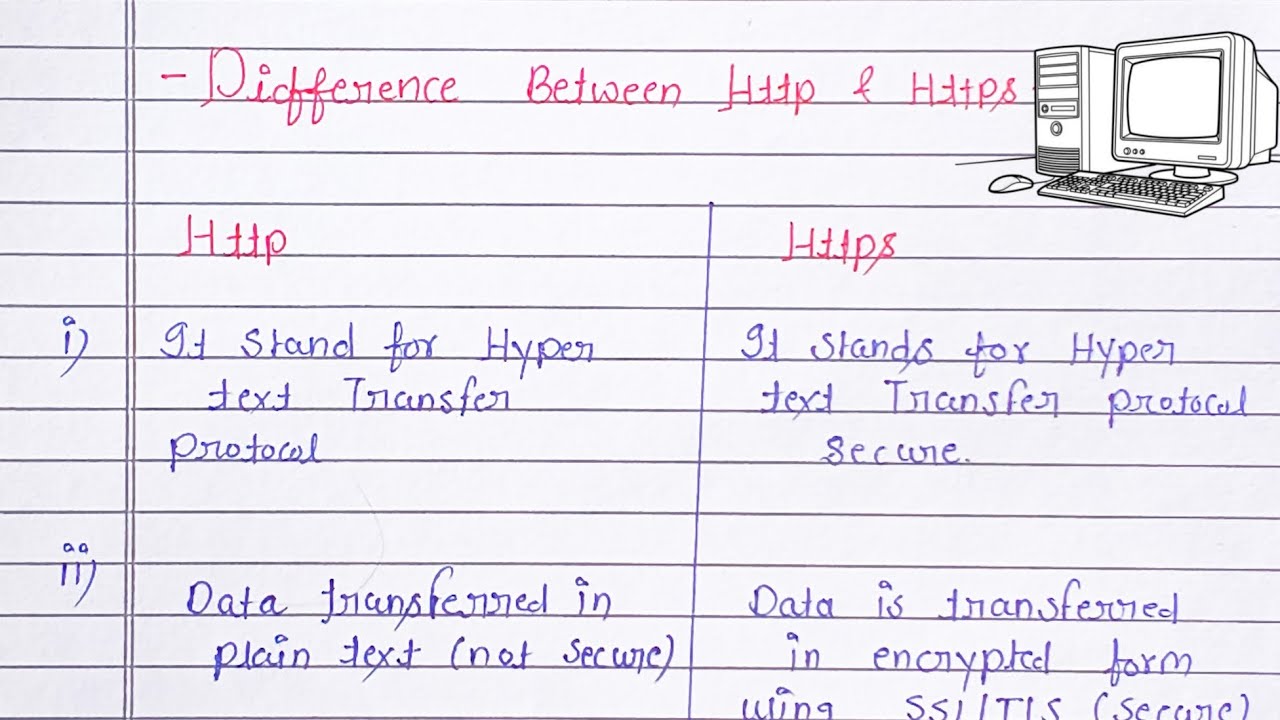 - Difference Between Http & Https
Http
Https
i) It Stand for Hyper
text Transfer
protocol
It stands for Hyper
text Transfer protocol
secure.
ii) Data transferred in
plain text (not secure)
Data is transferred
in encrypted form
using SSl/TlS (secure)